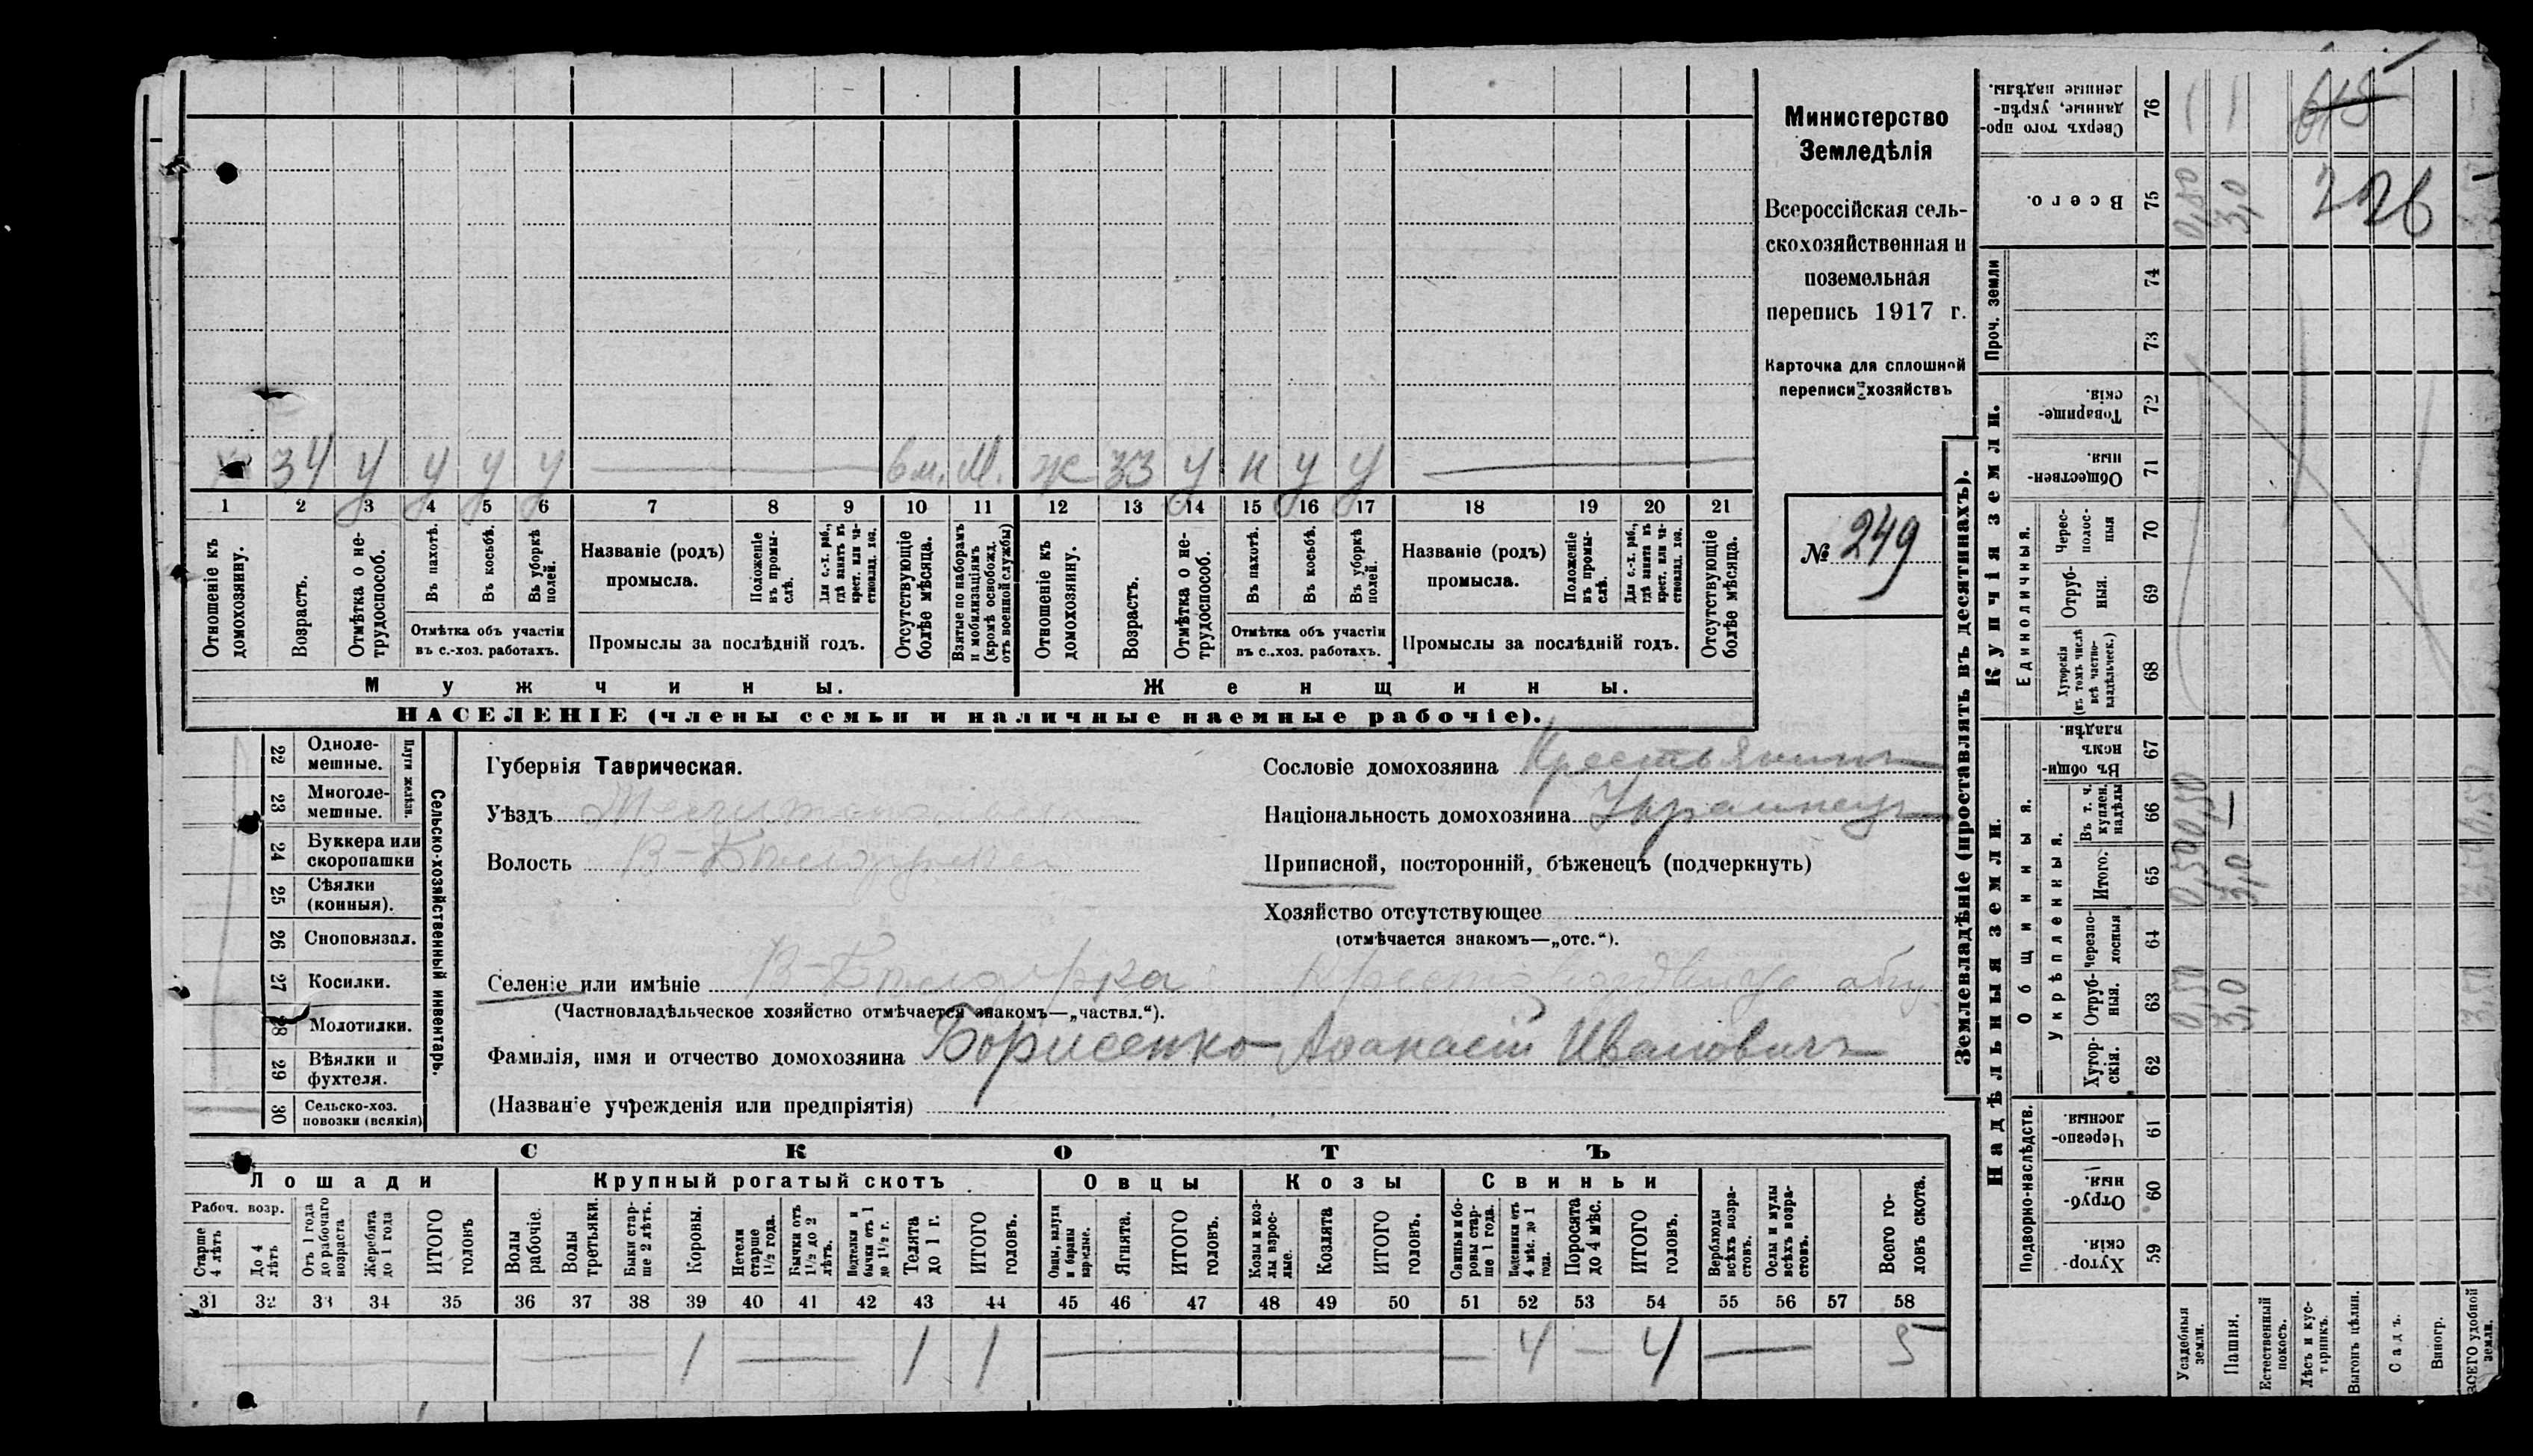 Министерство
Земледѣлія
Всероссійская сель-
скохозяйственная и
поземельная
перепись 1917 г.
Карточка для сплошной
переписи хозяйствъ
№ 249
34 У У У У вм. М. Ж 33 У Н У У
1 2 3 4 5 6 7 8 9 10 11 12 13 14 15 16 17 18 19 20 21
Отношеніе къ домохозяину.
Возрастъ.
Отмѣтка о не-трудоспособ.
Въ пахотѣ.
Въ косьбѣ.
Въ уборкѣ полей.
Отмѣтка объ участіи
въ с.-хоз. работахъ.
Названіе (родъ)
промысла.
Положеніе въ промы-слѣ.
Для с.-х. раб., гдѣ занятъ въ крест. или ча-стновлад. хоз.
Промыслы за послѣдній годъ.
Отсутствующіе болѣе мѣсяца.
Взятые по наборамъ и мобилизаціямъ (кромѣ освобожд. отъ военной службы)
Отношеніе къ домохозяину.
Возрастъ.
Отмѣтка о не-трудоспособ.
Въ пахотѣ.
Въ косьбѣ.
Въ уборкѣ полей.
Отмѣтка объ участіи
въ с..хоз. работахъ.
Названіе (родъ)
промысла.
Положеніе въ промы-слѣ.
Для с.-х. раб., гдѣ занята въ крест. или ча-стновлад. хоз.
Промыслы за послѣдній годъ.
Отсутствующіе болѣе мѣсяца.
Мужчины. Женщины.
НАСЕЛЕНІЕ (члены семьи и наличные наемные рабочіе).
22 Одноле-мешные.
23 Многоле-мешные.
Плуги желѣзн.
24 Буккера или скоропашки
25 Сѣялки (конныя).
26 Сноповязал.
27 Косилки.
28 Молотилки.
29 Вѣялки и фухтеля.
30 Сельско-хоз. повозки (всякія)
Сельско-хозяйственный инвентарь.
Губернія Таврическая.
Уѣздъ
Волость В-Бѣлозерская
Сословіе домохозяина Крестьянинъ
Національность домохозяина Украинецъ
Приписной, посторонній, бѣженецъ (подчеркнуть)
Хозяйство отсутствующее
(отмѣчается знакомъ—„отс.“).
Селеніе или имѣніе В-Бѣлозерка
(Частновладѣльческое хозяйство отмѣчается знакомъ—„частвл.“).
Фамилія, имя и отчество домохозяина Борисенко Афанасій Ивановичъ
(Названіе учрежденія или предпріятія)
СКОТЪ
Лошади Крупный рогатый скотъ Овцы Козы Свиньи
Рабоч. возр.
Старше 4 лѣтъ
До 4 лѣтъ
Отъ 1 года до рабочаго возраста
Жеребята до 1 года
ИТОГО головъ
Волы рабочіе.
Волы третьяки.
Быки стар-ше 2 лѣтъ.
Коровы.
Нетели старше 1½ года.
Бычки отъ 1½ до 2 лѣтъ.
Подтелки и бычки отъ 1 до 1½ г.
Телята до 1 г.
ИТОГО головъ.
Овцы, валухи и бараны взрослые.
Ягнята.
ИТОГО головъ.
Козы и коз-лы взрос-лые.
Козлята
ИТОГО головъ.
Свиньи и бо-ровы стар-ше 1 года.
Подсвинки отъ 4 мѣс. до 1 года.
Поросята до 4 мѣс.
ИТОГО головъ.
Верблюды всѣхъ возра-стовъ.
Ослы и мулы всѣхъ возра-стовъ.
Всего го-ловъ скота.
31 32 33 34 35 36 37 38 39 40 41 42 43 44 45 46 47 48 49 50 51 52 53 54 55 56 57 58
1 1 1 4 4 5
Землевладѣніе (проставлять въ десятинахъ).
Сверхъ того про-данные, укрѣп-ленные надѣлы. 76
Всего. 75 0,50 3,0 226
Проч. земли 74 73
Купчія земли.
Товарище-скія. 72
Обществен-ныя. 71
Единоличныя.
Черес-полос-ныя 70
Отруб-ныя. 69
Хуторскія (въ томъ числѣ всѣ частно-владѣльческ.) 68
Надѣльныя земли.
Общинныя.
Въ общин-номъ владѣн. 67
Укрѣпленныя.
Въ т. ч. куплен. надѣлы 66 0,50
Итого. 65 0,50 3,0
Черезпо-лосныя 64
Отруб-ныя. 63 0,50 3,0 3,50
Хутор-скія. 62
Подворно-наслѣдств.
Черезпо-лосныя. 61
Отруб-ныя. 60
Хутор-скія. 59
Усадебныя земли.
Пашня.
Естественный покосъ.
Лѣсъ и кус-тарникъ.
Выгонъ цѣлин.
Садъ.
Виногр.
ВСЕГО удобной земли.